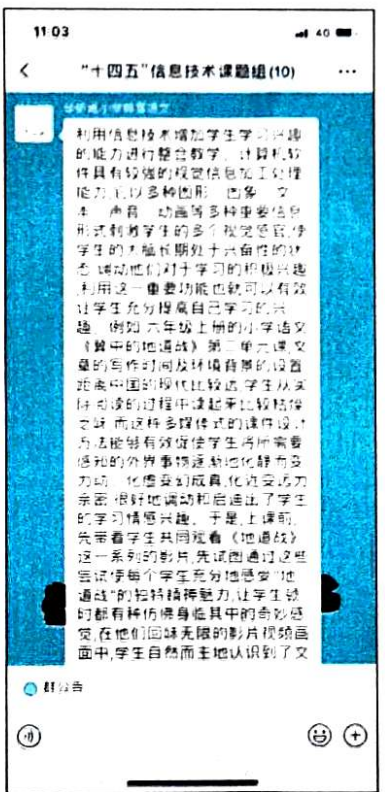 11:03
4G
“十四五”信息技术课题组(10)
利用信息技术增加学生学习兴趣
的能力进行整合教学。计算机软
件具有较强的视觉信息加工处理
能力,它以多种图形、图象、文
本、声音、动画等多种重要信息
形式刺激学生的多个视觉感官,使
学生的大脑长期处于兴奋性的状
态,调动他们对于学习的积极兴趣
,利用这一重要功能也就可以有效
让学生充分提高自己学习的兴
趣。例如:六年级上册的小学语文
《冀中的地道战》第二单元课,文
章的写作时间及环境背景的设置
距离中国的现代比较远,学生从实
际阅读的过程中读起来比较枯燥
乏味,而这种多媒体式的课件设计
方法能够有效促使学生将所需要
感知的外界事物逐渐地化静而变
为动、化虚变幻成真,化近变远为
亲密,很好地调动和启迪出了学生
的学习情感兴趣。于是,上课前,
先带着学生共同观看《地道战》
这一系列的影片,先试图通过这些
尝试使每个学生充分地感受“地
道战”的独特精神魅力,让学生顿
时都有种仿佛身临其中的奇妙感
觉,在他们回味无限的影片视频画
面中,学生自然而主地认识到了文
群公告